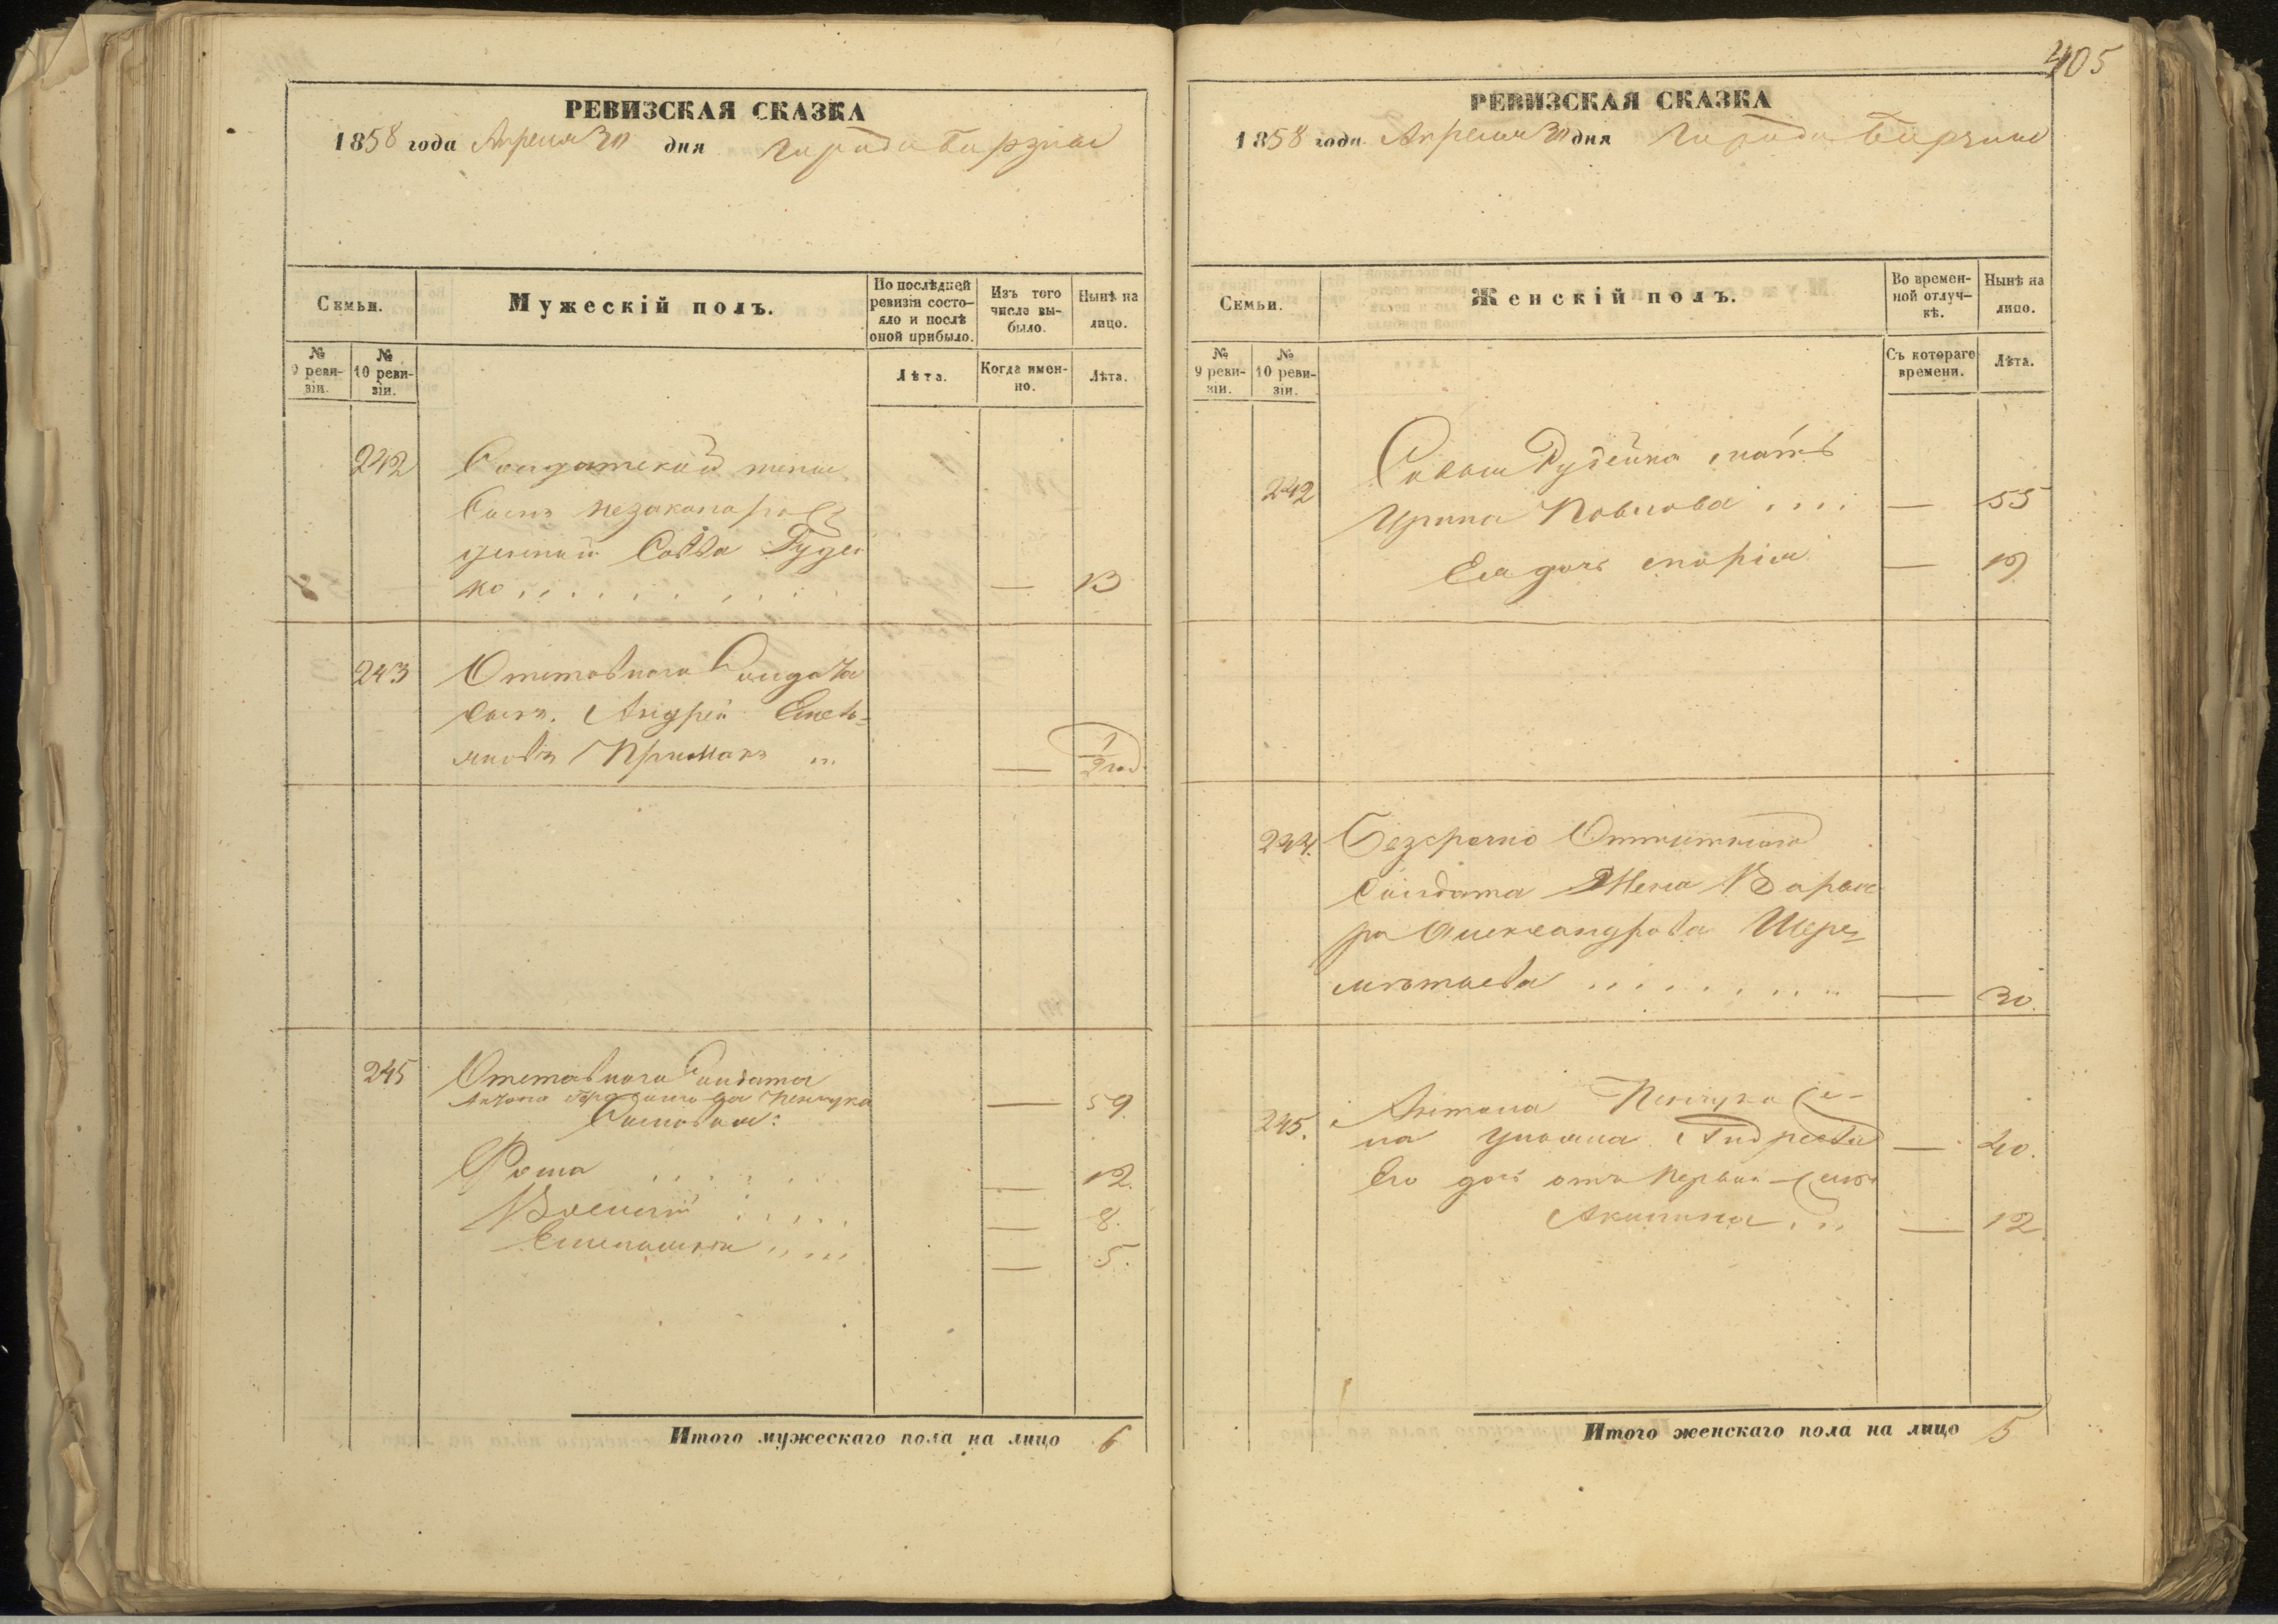 РЕВИЗСКАЯ СКАЗКА
1858 года Апреля 30 дня города Борзны
Семьи.
Мужескій полъ.
По послѣдней ревизіи состояло и послѣ оной прибыло.
Изъ того числа выбыло.
Нынѣ на лицо.
№ 9 ревизіи.
№ 10 ревизіи.
Лѣта.
Когда именно.
Лѣта.
242 Солдатской жены
сынъ незаконорож
денный Савва Гудей
ко — 13
243 Отставного Солдата
сынъ Андрей Емель=
яновъ Примакъ — 1/2 год.
245 Отставного Солдата
Антона
Сыновья: — 59
Фома — 12.
Василій — 8.
Емельянъ — 5.
Итого мужескаго пола на лицо 6
405
РЕВИЗСКАЯ СКАЗКА
1858 года Апреля 30 дня города Борзны
Семьи.
Женскій полъ.
Во временной отлучкѣ.
Нынѣ на лицо.
№ 9 ревизіи.
№ 10 ревизіи.
Съ котораго времени.
Лѣта.
242 Саввы Гудейка мать
Ирина Павлова — 55
Ея дочь Марія — 19
244. Безсрочно Отпускного
Солдата Жена Варва
ра Александрова Шере=
метьева — 30.
245. Антона Пенчука Же-
на Ульяна Андреева — 40.
Его дочь отъ первой жены
Акилина — 12
Итого женскаго пола на лицо 5